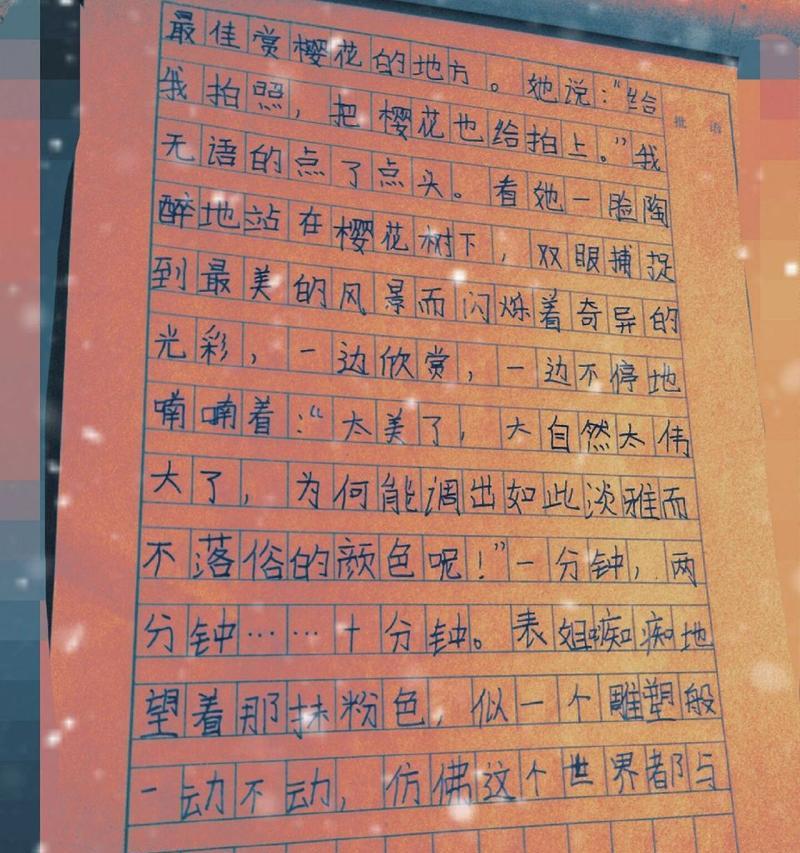 最佳赏樱花的地方。她说：“给
批语
我拍照，把樱花也给拍上。”我
无语的点了点头。看她一脸陶
醉地站在樱花树下，双眼捕捉
到最美的风景而闪烁着奇异的
光彩，一边欣赏，一边不停地
喃喃着：“太美了，大自然太伟
大了，为何能调出如此淡雅而
不落俗的颜色呢！”一分钟，两
分钟……十分钟。表姐痴痴地
望着那抹粉色，似一个雕塑般
一动不动，仿佛这个世界都与